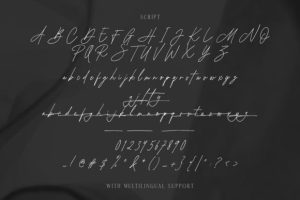 SCRIPT
A B C D E F G H I J K L M N O
P Q R S T U V W X Y Z
abcdefghijklmnopqrstuvwxyz
abcdefghijklmnopqrstuvwxyz
0123456789
WITH MULTILINGUAL SUPPORT